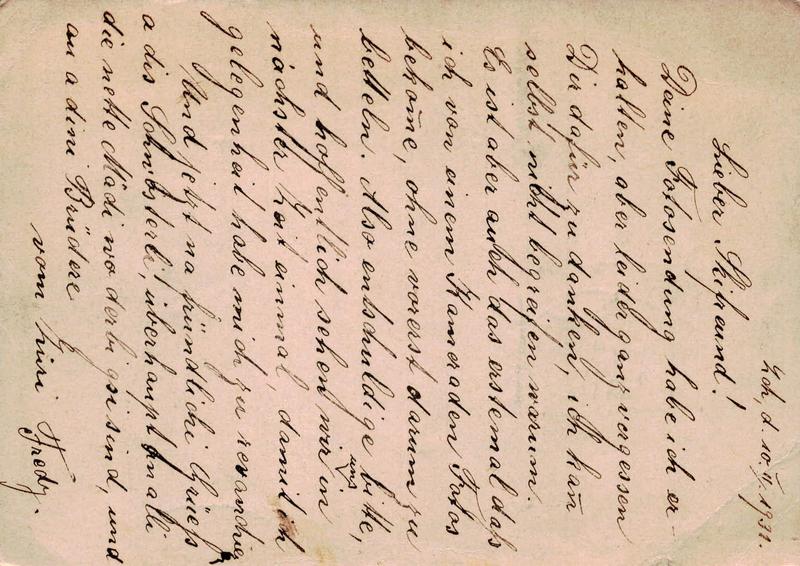 Zch, d. 10. V. 1931.
Lieber Skifreund!
Deine Fotosendung habe ich er-
halten, aber leider ganz vergessen
Dir dafür zu danken, ich kan̄
selbst nicht begreifen warum.
Es ist aber auch das erstemal daß
ich von einem Kameraden Fotos
bekom̄e, ohne vorerst darum zu
betteln. Also entschuldige bitte,
und hoffentlich sehen wir uns in
nächster Zeit einmal, damit ich
gelegenheit habe mich zu revanchieren
Und jetzt na fründlichi Grüess
a dis Schwösterli, überhaupt an alli
die nette Mädi wo derbi gsi sind, und
au a dini Brüedere
vom
Fredy.